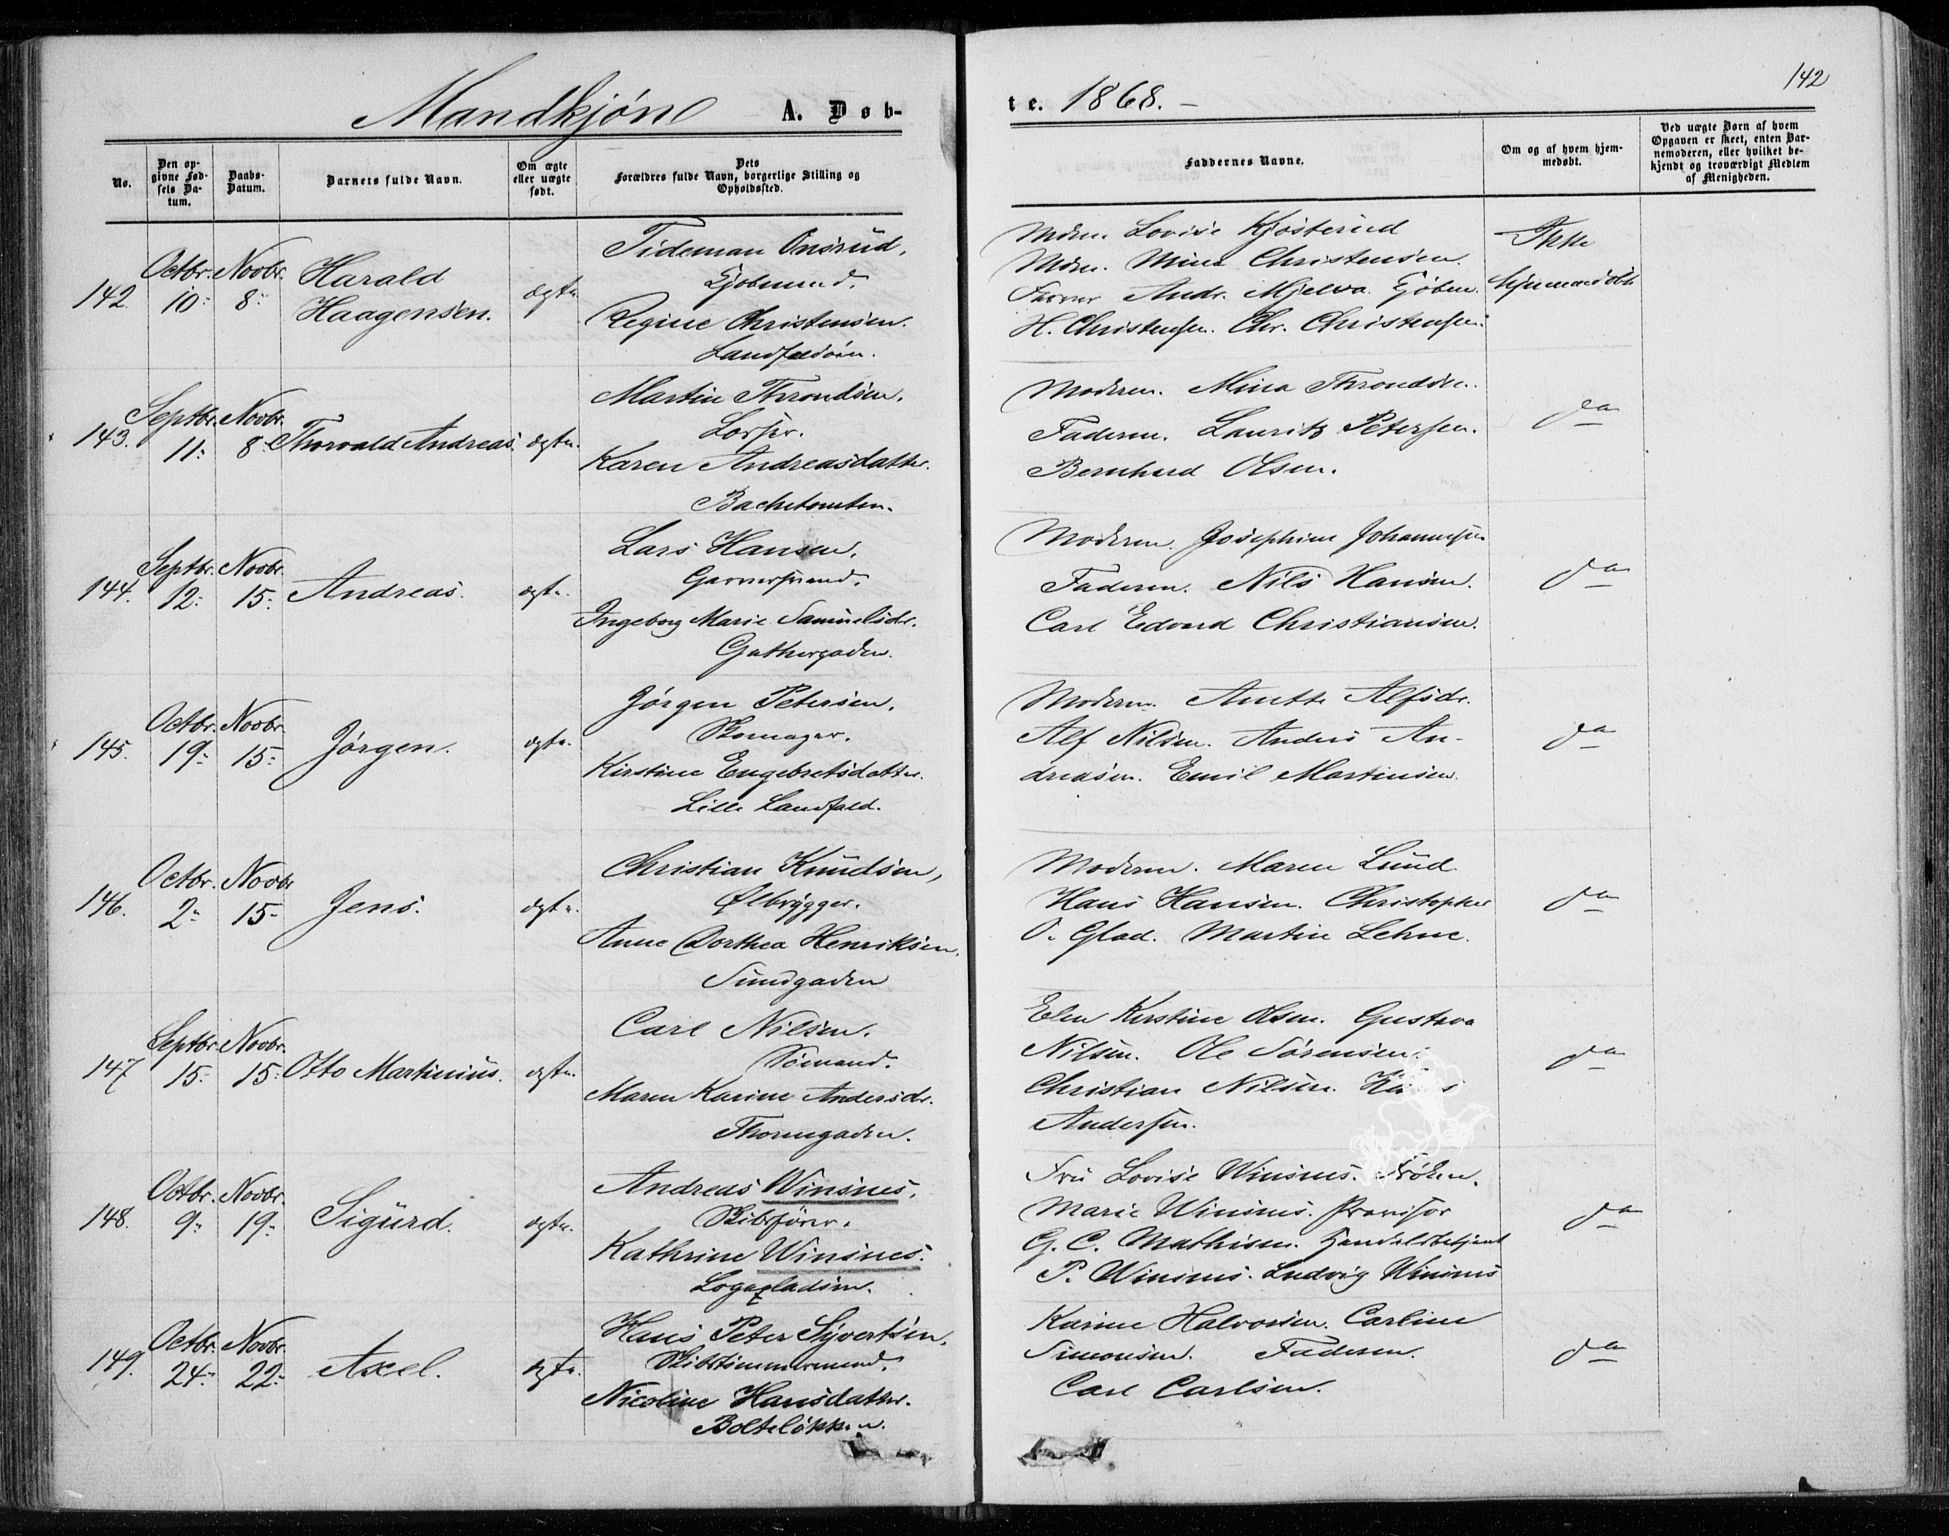 142
Mandkjøn A. Døb-
te. 1868.-
No.
Den opgivne Fødsels Datum.
Daabs-Datum.
Barnets fulde Navn.
Om ægte eller uægte født.
Dets Forældres fulde Navn, borgerlige Stilling og Opholdssted.
Faddernes Navne.
Om og af hvem hjemmedøbt.
Ved uægte Børn af hvem Opgaven er skeet, enten Barnemoderen, eller hvilket bekjendt og troværdigt Medlem af Menigheden.
142. Octbr. 10: Novbr. 8: Harald Haagensen. ægte.
Tideman Onsrud,
Kjøbmand.
Regine Christensen.
Landfaldøen.
Mdm. Lovise Kjøsterud
Mdm. Mina Christensen.
Farver Andr. Mjelva. Kjøbm.
H. Christensen. Chr. Christensen.
Ikke hjemmedøbt
143. Septbr. 11: Novbr. 8: Thorvald Andreas. ægte.
Martin Throndsen.
Karen Andreasdatter.
Bachetomten.
Moderen. Mina Throndsen.
Faderen. Lauritz Petersen.
Bernhard Olsen.
do
144. Septbr. 12: Novbr. 15: Andreas. ægte.
Lars Hansen,
Garversvend.
Ingeborg Marie Samuelsdr.
Gathergaden.
Moderen. Josephine Johannesen
Faderen. Nils Hansen.
Carl Edvard Christiansen.
do
145. Octbr. 19: Novbr. 15: Jørgen. ægte.
Jørgen Petersen,
Skomager.
Kirstine Engebretsdatter.
Lille Landfald.
Moderen. Anette Alfsdr.
Alf Nilsen. Anders An-
dreasen. Emil Martinsen.
do
146. Octbr. 2: Novbr 15- Jens. ægte.
Christian Knudsen,
Ølbrygger.
Anne Dorthea Henriksen.
Sundgaden
Moderen. Maren Lund.
Hans Hansen. Christopher
O. Glad. Martin Lehne.
do
147 Septbr. 15: Novbr. 15: Otto Martinius. ægte.
Carl Nilsen.
Sømand.
Maren Karine Andersdr.
Thornegaden.
Elen Kirstine Olsen. Gustava
Nilsen. Ole Sørensen.
Christian Nilsen. Hans
Andersen.
do
148. Octbr. 9: Novbr. 19: Sigurd. ægte.
Andreas Winsnes,
Skibsfører.
Kathrine Winsnes.
Fru Lovise Winsnes. Frøken.
Marie Winsnes. Provisor
G. C. Mathisen. Handelsbetjent
P. Winsnes. Ludvig Winsnes
do
149. Octbr. 24: Novbr. 22: Axel. ægte.
Hans Peter Syvertsen.
Skibstimmermand.
Nicoline Hansdatter.
Bolteløkken.
Karine Halvorsen. Carline
Simonsen. Faderen.
Carl Carlsen.
do